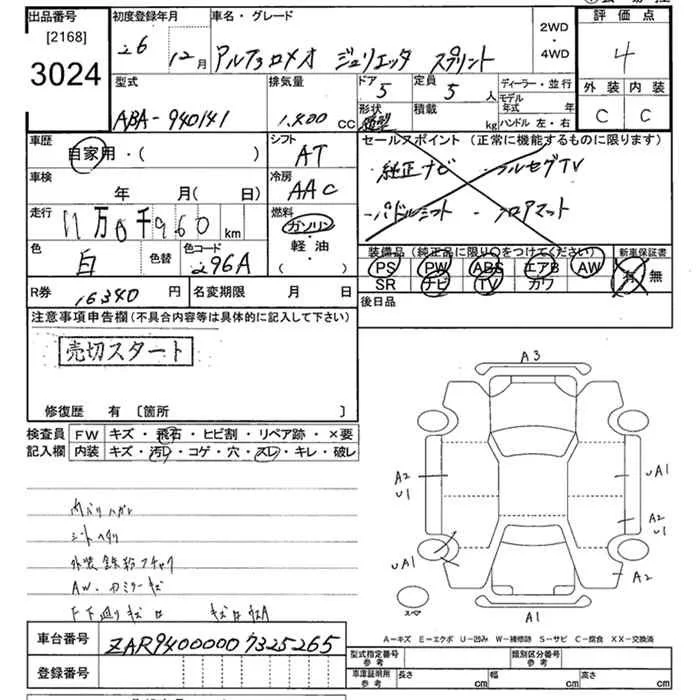 出品番号
[2168]
3024
初度登録年月
26 12月
車名・グレード
アルファロメオ ジュリエッタ スプリント
2WD
・
4WD
評価点
4
外装 内装
C C
型式
ABA-940141
排気量
1,400 CC
ドア
5
定員
5 人
形状
積載
kg
ディーラー・並行
モデル年式 年
ハンドル 左・右
車歴
自家用・( )
シフト
AT
セールスポイント (正常に機能するものに限ります)
・純正ナビ ・フルセグTV
・パドルシフト ・フロアマット
車検
年 月(日)
冷房
AAC
走行
11万0千960 km
燃料
ガソリン
・
軽油
・
( )
色
白
色替
色コード
296A
装備品(純正品に限り○をつけてください)
PS PW ABS エアB AW
SR ナビ TV カワ
新車保証書
有 無
R券
16340円
名変期限 月 日
後日品
注意事項申告欄(不具合内容等は具体的に記入して下さい)
売切スタート
修復歴 有 〔箇所 〕
検査員
記入欄
FW キズ・飛石・ヒビ割・リペア跡・×要
内装 キズ・汚レ・コゲ・穴・スレ・キレ・破レ
内バリハガレ
シートヘタリ
AW、ドアミラーキズ
A3
A2
U1
UA1
A2
U1
UA1
A2
A1
A-キズ E-エクボ U-凹み W-補修跡 S-サビ C-腐食 XX-交換済
車台番号
ZAR94000007325265
登録番号
型式指定番号
参考
類別区分番号
参考
車庫証明用
参考
長さ cm
幅 cm
高さ cm